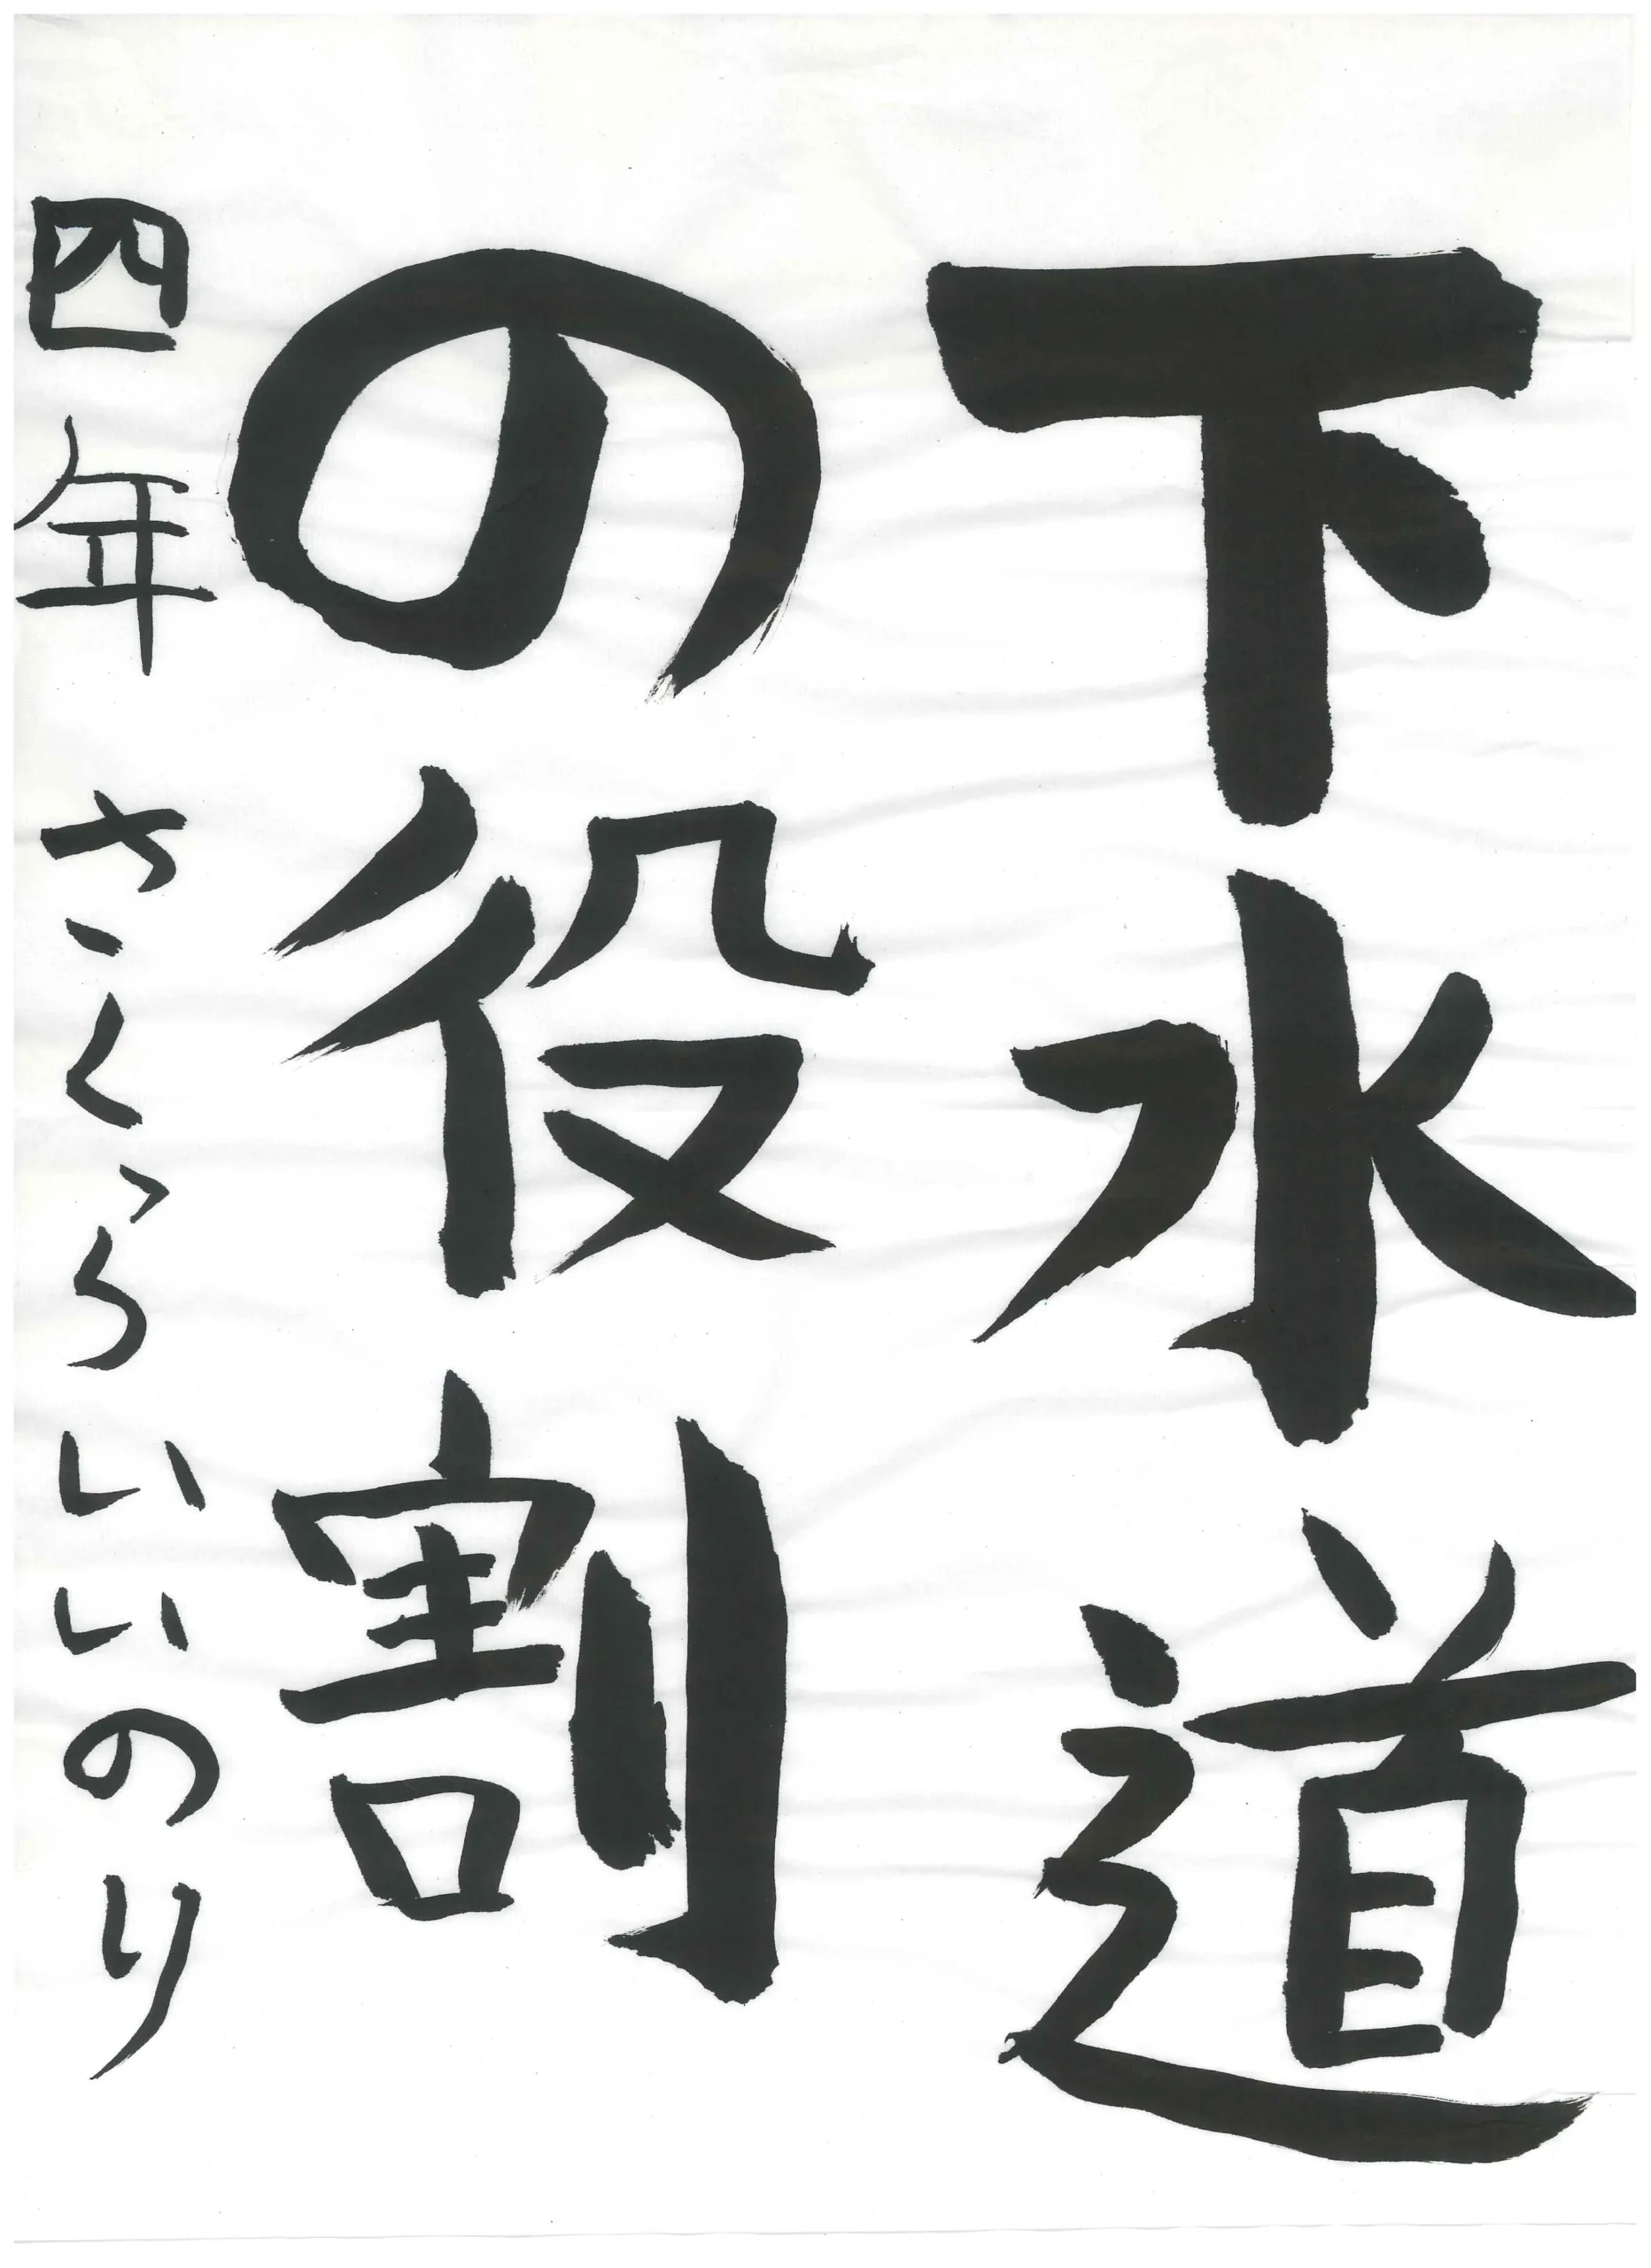 下水道
の役割
四年 さくらいいのり